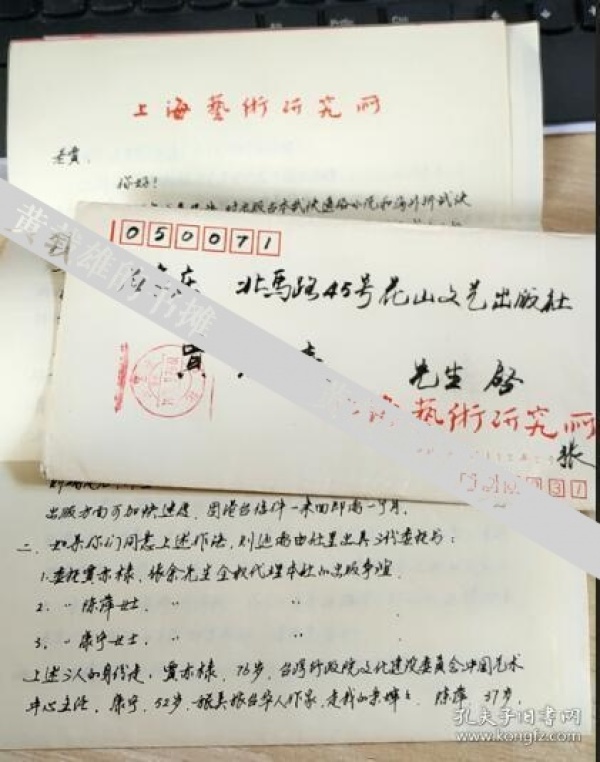 上海藝術研究所
老賈:
你好!
050071
北馬路45号花山文艺出版社
先生 啓
藝術研究所
张
出版方面可加快进度.因港台信件一来回即需一个月.
二、如果你们同意上述作法,则还需由社里出具3张委托书:
1.委托賈亦棣、张余先生全权代理本社的出版事宜.
2. 〃 陈萍女士. 〃 〃
3. 〃 康宁女士. 〃 〃
上述3人的身份是:賈亦棣、76岁.台湾行政院文化建设委员会中国艺术
中心主任、康宁、52岁.旅美旅台华人作家、是我的亲 陈萍 37岁.
黄载雄的书摊
孔夫子旧书网
www.kongfz.com